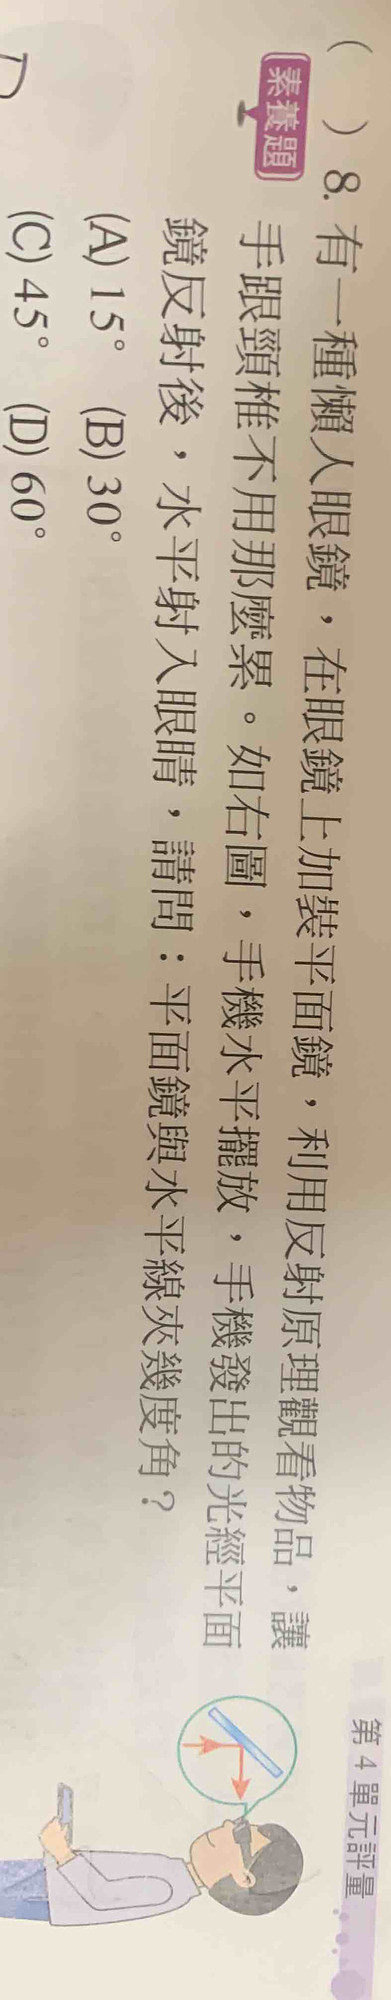 第4單元評量
( )8. 有一種懶人眼鏡，在眼鏡上加裝平面鏡，利用反射原理觀看物品，讓
素養題
手跟頸椎不用那麼累。如右圖，手機水平擺放，手機發出的光經平面
鏡反射後，水平射入眼睛，請問：平面鏡與水平線夾幾度角？
(A) 15° (B) 30°
(C) 45° (D) 60°